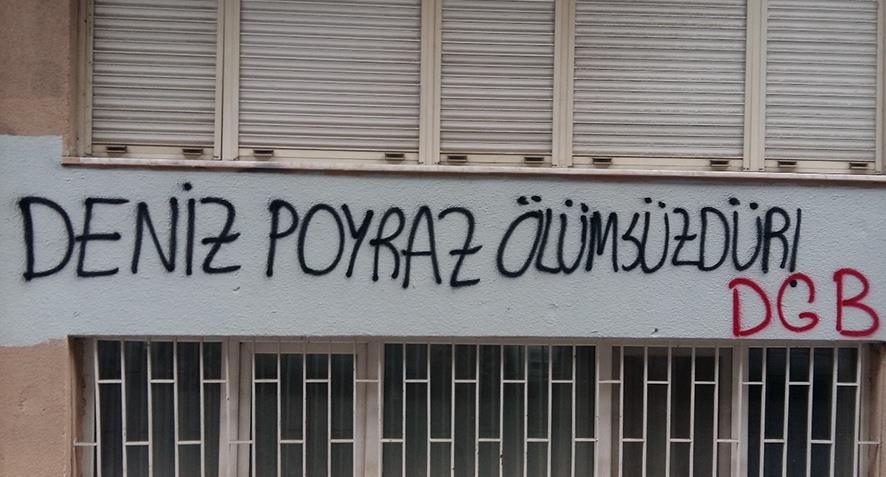 DENİZ POYRAZ ÖLÜMSÜZDÜR!
DGB